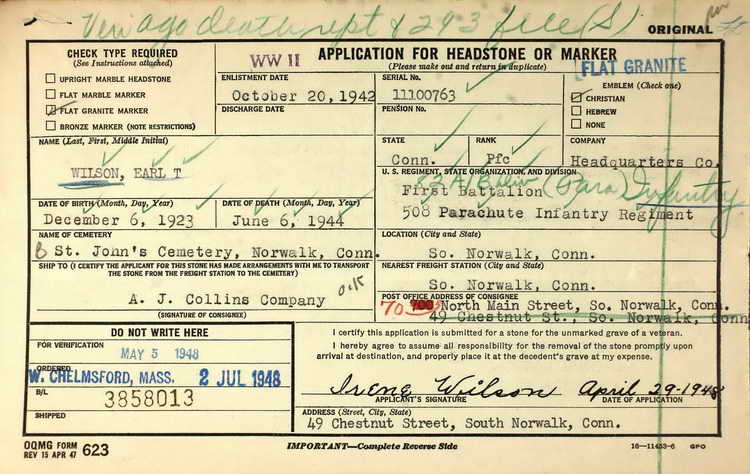 Veri ago death rept & 293 file (S)
ORIGINAL
CHECK TYPE REQUIRED
(See Instructions attached)
UPRIGHT MARBLE HEADSTONE
FLAT MARBLE MARKER
FLAT GRANITE MARKER
BRONZE MARKER (NOTE RESTRICTIONS)
WW II
APPLICATION FOR HEADSTONE OR MARKER
(Please make out and return in duplicate)
FLAT GRANITE
ENLISTMENT DATE
October 20, 1942
DISCHARGE DATE
SERIAL No.
11100763
PENSION No.
EMBLEM (Check one)
CHRISTIAN
HEBREW
NONE
NAME (Last, First, Middle Initial)
WILSON, EARL T
STATE
Conn.
RANK
Pfc
COMPANY
Headquarters Co.
U. S. REGIMENT, STATE ORGANIZATION, AND DIVISION
First Battalion
(Para) Infantry
508 Parachute Infantry Regiment
DATE OF BIRTH (Month, Day, Year)
December 6, 1923
DATE OF DEATH (Month, Day, Year)
June 6, 1944
NAME OF CEMETERY
St. John's Cemetery, Norwalk, Conn.
LOCATION (City and State)
So. Norwalk, Conn.
SHIP TO (I CERTIFY THE APPLICANT FOR THIS STONE HAS MADE ARRANGEMENTS WITH ME TO TRANSPORT
THE STONE FROM THE FREIGHT STATION TO THE CEMETERY)
A. J. Collins Company
O.K
(SIGNATURE OF CONSIGNEE)
NEAREST FREIGHT STATION (City and State)
So. Norwalk, Conn.
POST OFFICE ADDRESS OF CONSIGNEE
70 North Main Street, So. Norwalk, Conn.
49 Chestnut St., So. Norwalk, Conn
DO NOT WRITE HERE
FOR VERIFICATION
MAY 5 1948
ORDERED
W. CHELMSFORD, MASS. 2 JUL 1948
B/L
3858013
SHIPPED
I certify this application is submitted for a stone for the unmarked grave of a veteran.
I hereby agree to assume all responsibility for the removal of the stone promptly upon
arrival at destination, and properly place it at the decedent's grave at my expense.
Irene Wilson April 29-1948
APPLICANT'S SIGNATURE DATE OF APPLICATION
ADDRESS (Street, City, State)
49 Chestnut Street, South Norwalk, Conn.
OQMG FORM
REV 15 APR 47 623
IMPORTANT—Complete Reverse Side
16—11453-6 GPO